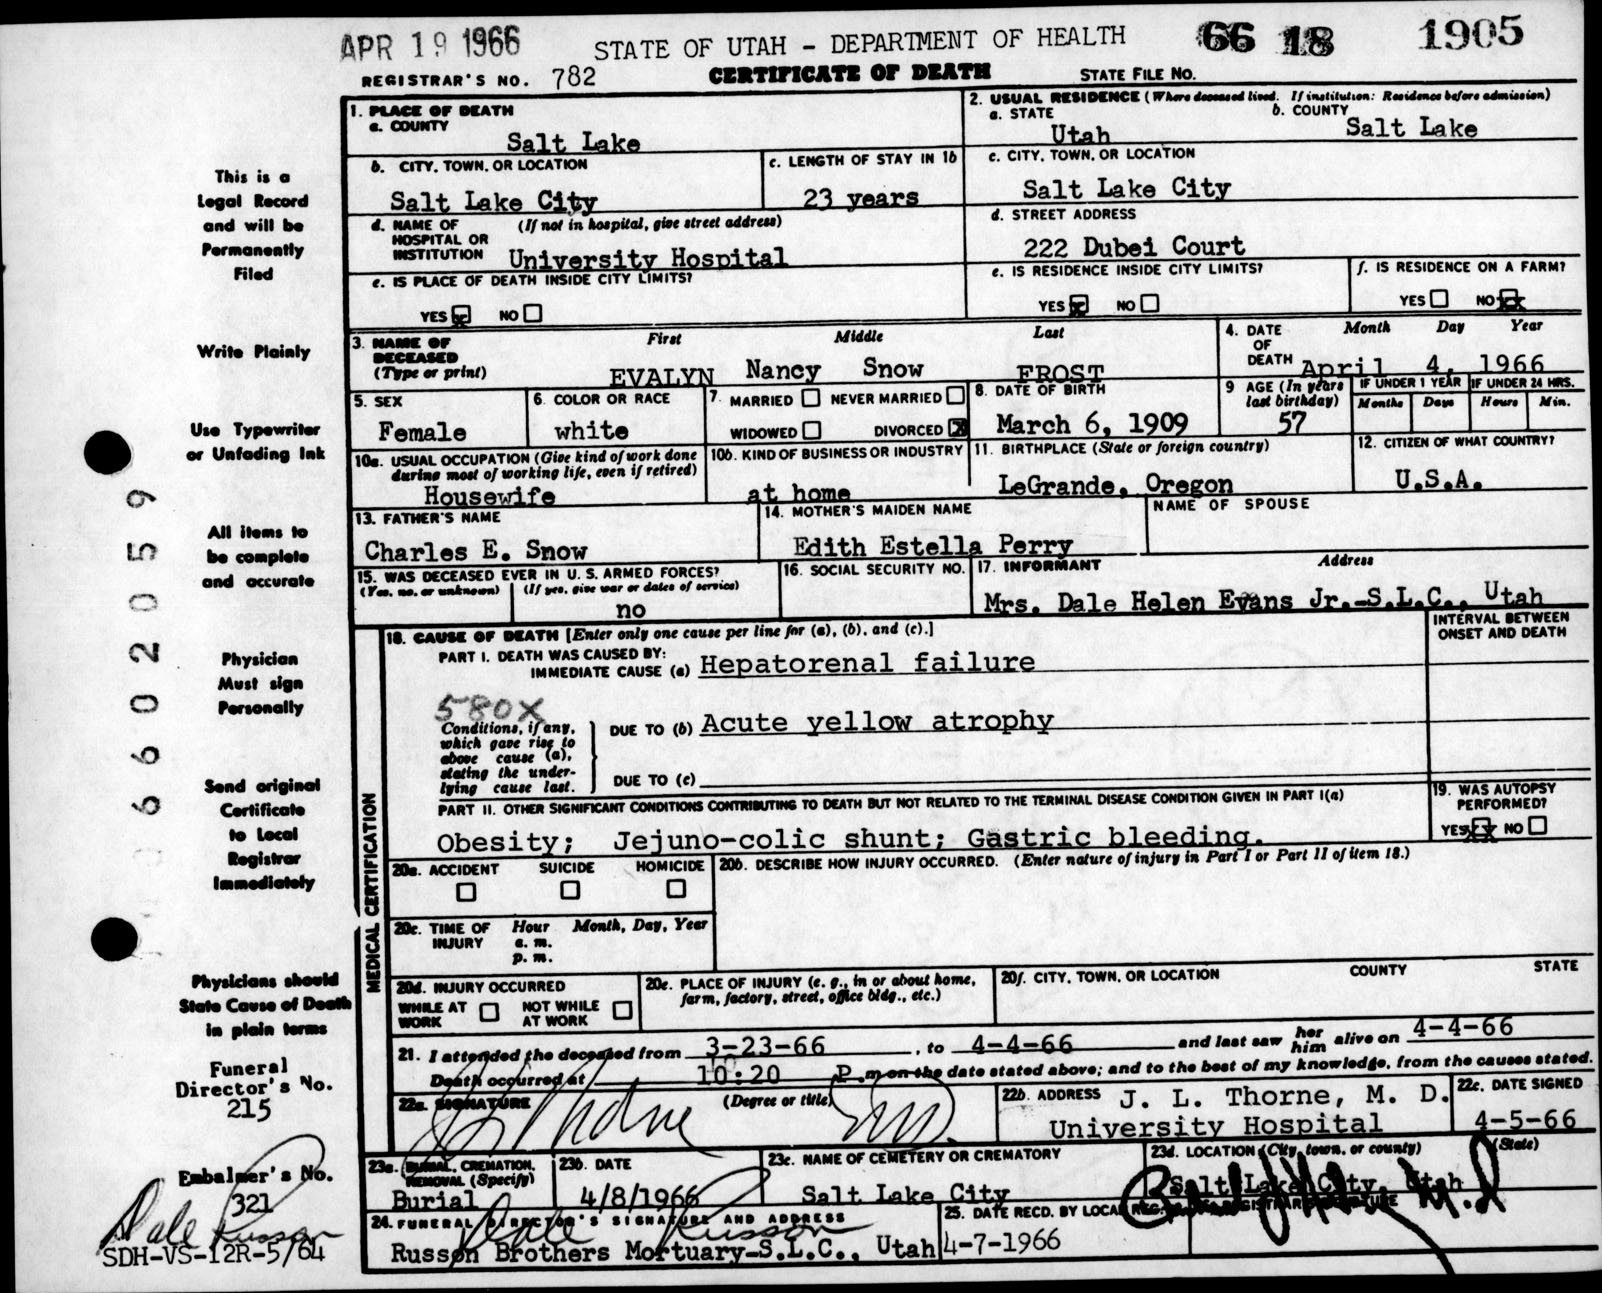 APR 19 1966 STATE OF UTAH – DEPARTMENT OF HEALTH 66 18 1905
REGISTRAR'S NO. 782 CERTIFICATE OF DEATH STATE FILE NO.
This is a
Legal Record
and will be
Permanently
Filed
Write Plainly
Use Typewriter
or Unfading Ink
All items to
be complete
and accurate
Physician
Must sign
Personally
Send original
Certificate
to Local
Registrar
Immediately
Physicians should
State Cause of Death
in plain terms
Funeral
Director's No.
215
Embalmer's No.
321
Dale Russon
SDH-VS-12R-5/64
6602059
1. PLACE OF DEATH
a. COUNTY
Salt Lake
2. USUAL RESIDENCE (Where deceased lived. If institution: Residence before admission)
a. STATE b. COUNTY
Utah Salt Lake
b. CITY, TOWN, OR LOCATION c. LENGTH OF STAY IN 1b
Salt Lake City 23 years
c. CITY, TOWN, OR LOCATION
Salt Lake City
d. NAME OF HOSPITAL OR INSTITUTION (If not in hospital, give street address)
University Hospital
d. STREET ADDRESS
222 Dubei Court
e. IS PLACE OF DEATH INSIDE CITY LIMITS?
YES X NO
e. IS RESIDENCE INSIDE CITY LIMITS? f. IS RESIDENCE ON A FARM?
YES X NO YES NO XX
3. NAME OF DECEASED (Type or print) First Middle Last
EVALYN Nancy Snow FROST
4. DATE OF DEATH Month Day Year
April 4, 1966
5. SEX 6. COLOR OR RACE 7. MARRIED NEVER MARRIED WIDOWED DIVORCED X
Female white
8. DATE OF BIRTH
March 6, 1909
9 AGE (In years last birthday) IF UNDER 1 YEAR IF UNDER 24 HRS.
Months Days Hours Min.
57
10a. USUAL OCCUPATION (Give kind of work done during most of working life, even if retired)
Housewife
10b. KIND OF BUSINESS OR INDUSTRY
at home
11. BIRTHPLACE (State or foreign country)
LeGrande, Oregon
12. CITIZEN OF WHAT COUNTRY?
U.S.A.
13. FATHER'S NAME
Charles E. Snow
14. MOTHER'S MAIDEN NAME
Edith Estella Perry
NAME OF SPOUSE
15. WAS DECEASED EVER IN U. S. ARMED FORCES?
(Yes, no, or unknown) (If yes, give war or dates of service)
no
16. SOCIAL SECURITY NO.
17. INFORMANT Address
Mrs. Dale Helen Evans Jr.-S.L.C., Utah
MEDICAL CERTIFICATION
18. CAUSE OF DEATH [Enter only one cause per line for (a), (b), and (c).]
INTERVAL BETWEEN
ONSET AND DEATH
PART I. DEATH WAS CAUSED BY:
IMMEDIATE CAUSE (a) Hepatorenal failure
580X
Conditions, if any,
which gave rise to
above cause (a),
stating the under-
lying cause last.
DUE TO (b) Acute yellow atrophy
DUE TO (c)
PART II. OTHER SIGNIFICANT CONDITIONS CONTRIBUTING TO DEATH BUT NOT RELATED TO THE TERMINAL DISEASE CONDITION GIVEN IN PART I(a)
Obesity; Jejuno-colic shunt; Gastric bleeding.
19. WAS AUTOPSY
PERFORMED?
YES XX NO
20a. ACCIDENT SUICIDE HOMICIDE
20b. DESCRIBE HOW INJURY OCCURRED. (Enter nature of injury in Part I or Part II of item 18.)
20c. TIME OF INJURY Hour Month, Day, Year
a. m.
p. m.
20d. INJURY OCCURRED
WHILE AT WORK NOT WHILE AT WORK
20e. PLACE OF INJURY (e. g., in or about home, farm, factory, street, office bldg., etc.)
20f. CITY, TOWN, OR LOCATION COUNTY STATE
21. I attended the deceased from 3-23-66, to 4-4-66 and last saw her him alive on 4-4-66
Death occurred at 10:20 P.m on the date stated above; and to the best of my knowledge, from the causes stated.
22a. SIGNATURE (Degree or title)
Thorne M.D.
22b. ADDRESS J. L. Thorne, M. D.
University Hospital
22c. DATE SIGNED
4-5-66
23a. BURIAL, CREMATION, REMOVAL (Specify)
Burial
23b. DATE
4/8/1966
23c. NAME OF CEMETERY OR CREMATORY
Salt Lake City
23d. LOCATION (City, town, or county) (State)
Salt Lake City, Utah
24. FUNERAL DIRECTOR'S SIGNATURE AND ADDRESS
Dale Russon
Russon Brothers Mortuary-S.L.C., Utah
25. DATE RECD. BY LOCAL REG.
4-7-1966
M.D